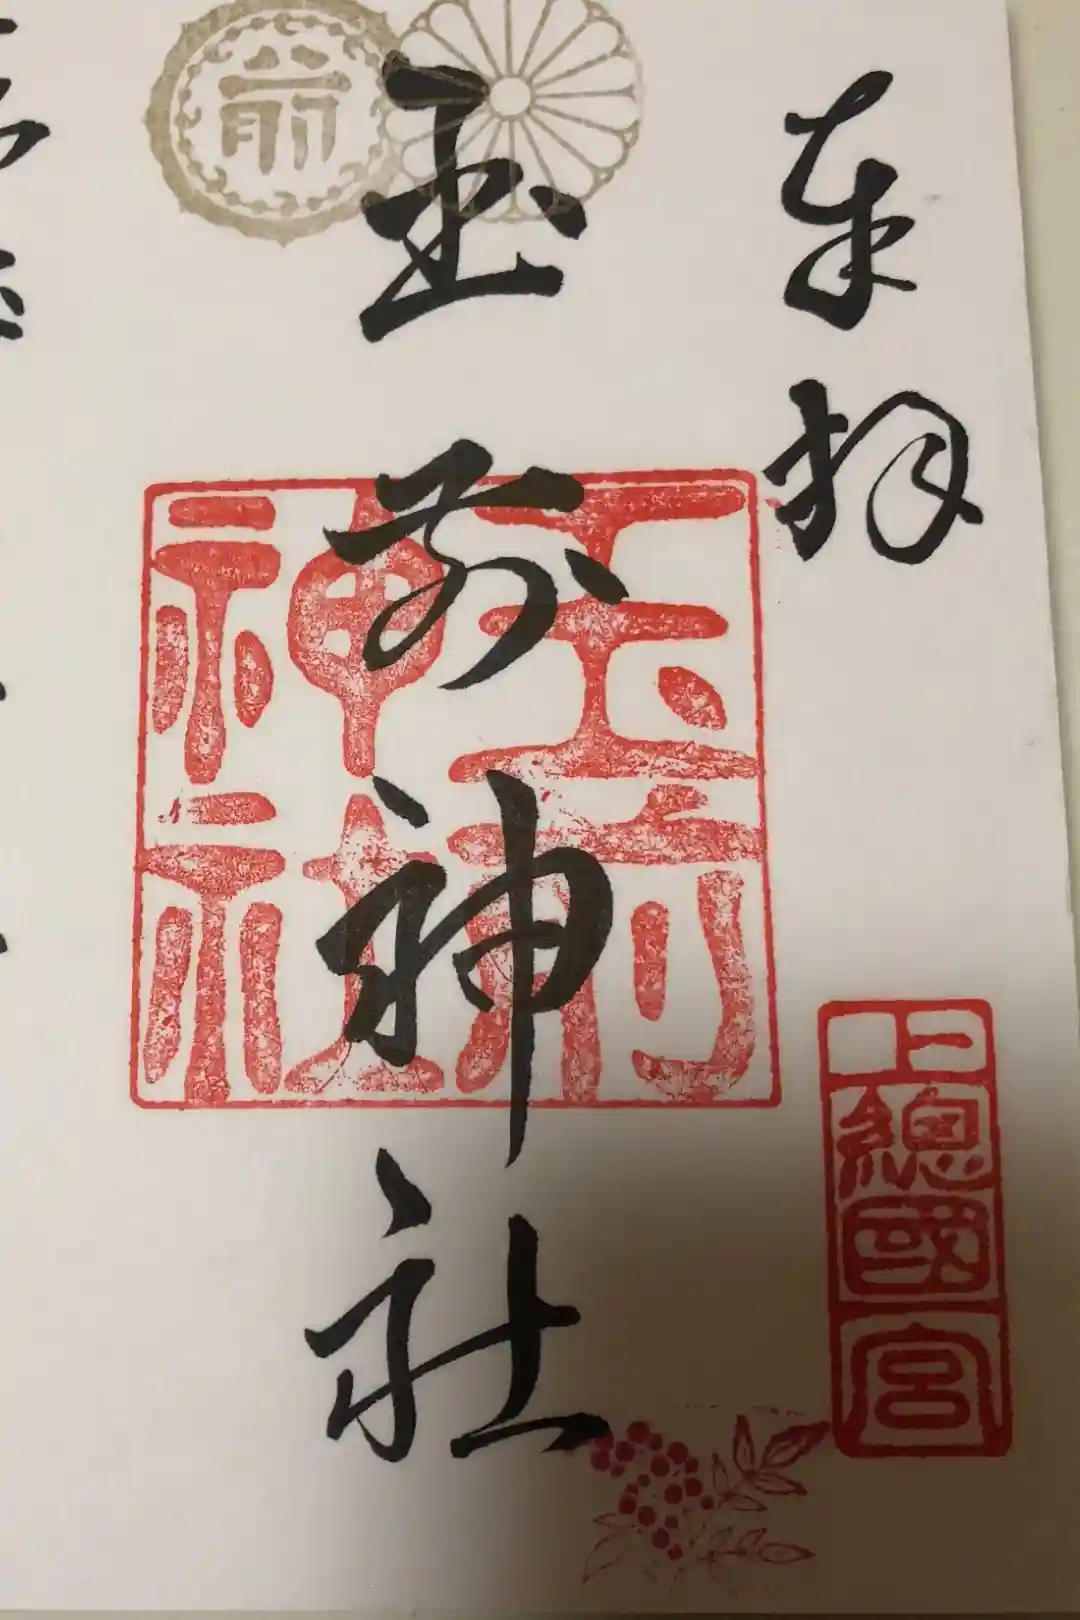 奉拝
上總國一宮
玉前神社
玉前神社
前